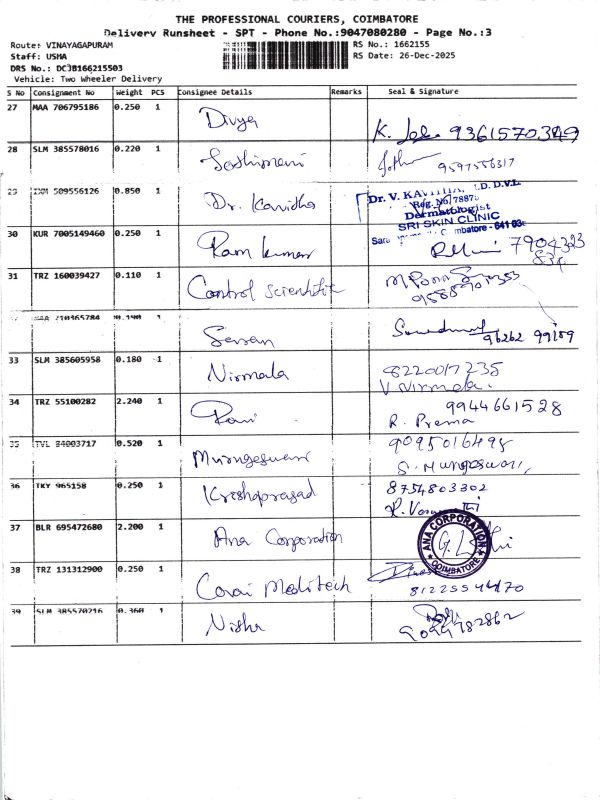 THE PROFESSIONAL COURIERS, COIMBATORE
Delivery Runsheet - SPT - Phone No.:9047080280 - Page No.:3
Route: VINAYAGAPURAM RS No.: 1662155
Staff: USHA RS Date: 26-Dec-2025
DRS No.: DC3B166215503
Vehicle: Two Wheeler Delivery
S No Consignment No Weight PCS Consignee Details Remarks Seal & Signature
27 MAA 706795186 0.250 1
Divya
9361570349
28 SLM 385578016 0.220 1
9597556317
29 509556126 0.850 1
Dr. Kavidha
Dr. V. KAVITHA, D.D.V.L
Reg. No. 7887
Dermatologist
SRI SKIN CLINIC
Coimbatore - 641 03
30 KUR 7005149460 0.250 1
Ram kumar
7904323
31 TRZ 160039427 0.110 1
Control Scientific
MAA 710365784 0.190 1
Saran
96262 99189
33 SLM 385605958 0.180 1
Nirmala 8220017235
V. Nirmala.
34 TRZ 55100282 2.240 1
Rani 9944661528
R. Prema
35 TVL 34003717 0.520 1 9095016495
Murugeswari S. Murugeswari,
36 TKY 965158 0.250 1 8754803302
Krishprasad
37 BLR 695472680 2.200 1
Ana Corporation
ANA CORPORATION
COIMBATORE
38 TRZ 131312900 0.250 1
Covai Meditech
39 SLM 385570216 0.360 1
Nisha
9099782862